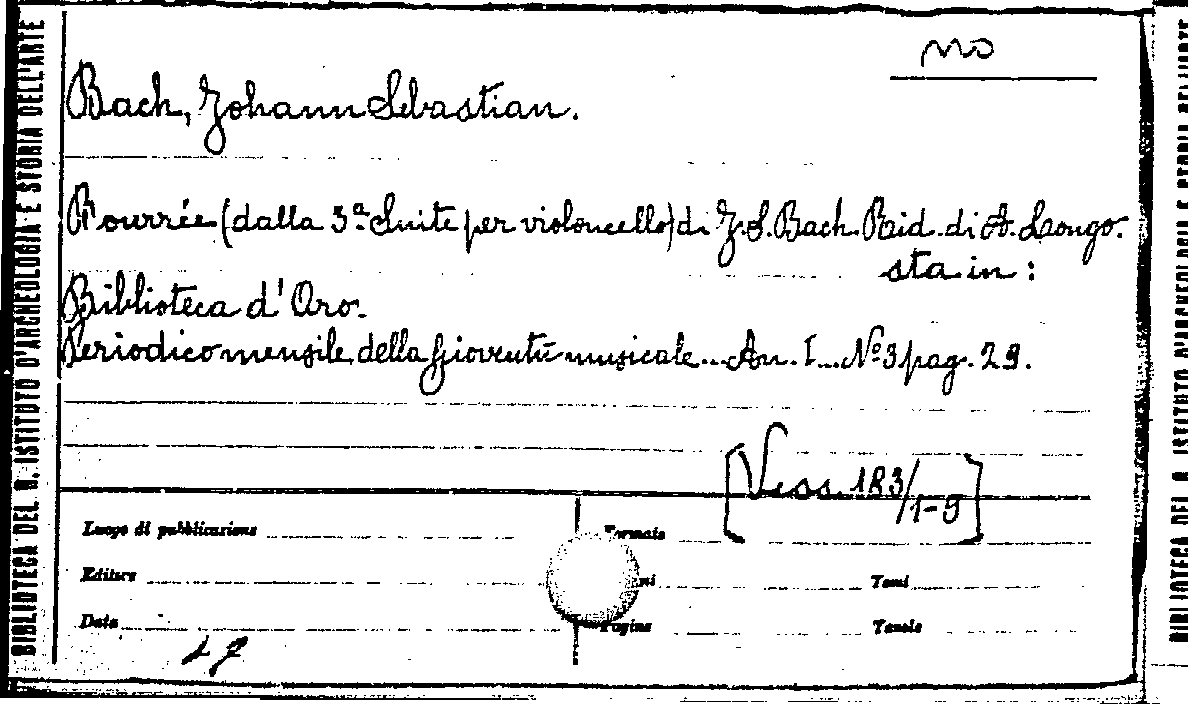 MO
Bach, Johann Sebastian.
Bourrée (dalla 3ª Suite per violoncello) di J. S. Bach. Rid. di A. Longo.
sta in :
Biblioteca d'Oro.
Periodico mensile della gioventù musicale... An. I... Nº 3 pag. 29.
[Vess. 183/1-9]
Luogo di pubblicazione
Formato
Editore
Tomi
Data
Pagine
Tavole
BIBLIOTECA DEL R. ISTITUTO D'ARCHEOLOGIA E STORIA DELL'ARTE